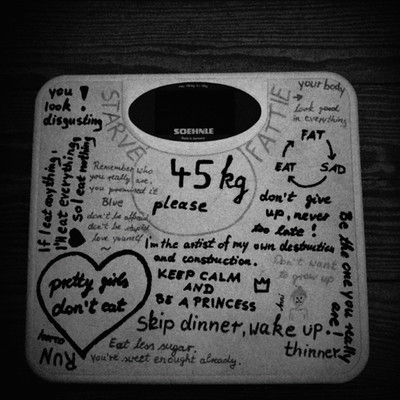 you
look !
disgusting
STARVE
FATTIE
SOEHNLE
your body
look good
in everything
FAT
EAT
SAD
If I eat anything,
I'll eat everything,
So I eat nothing
Remember who
you really are,
you promised it
Blue
don't be afraid
don't be stupid
love yourself
45 kg
please
don't give
up, never
too late!
I'm the artist of my own destruction
and construction.
Don't want
to grow up
KEEP CALM
AND
BE A PRINCESS
Be the one you really
are!
pretty girls
don't eat
Skip dinner, wake up
thinner
RUN
Eat less sugar.
You're sweet enought already.